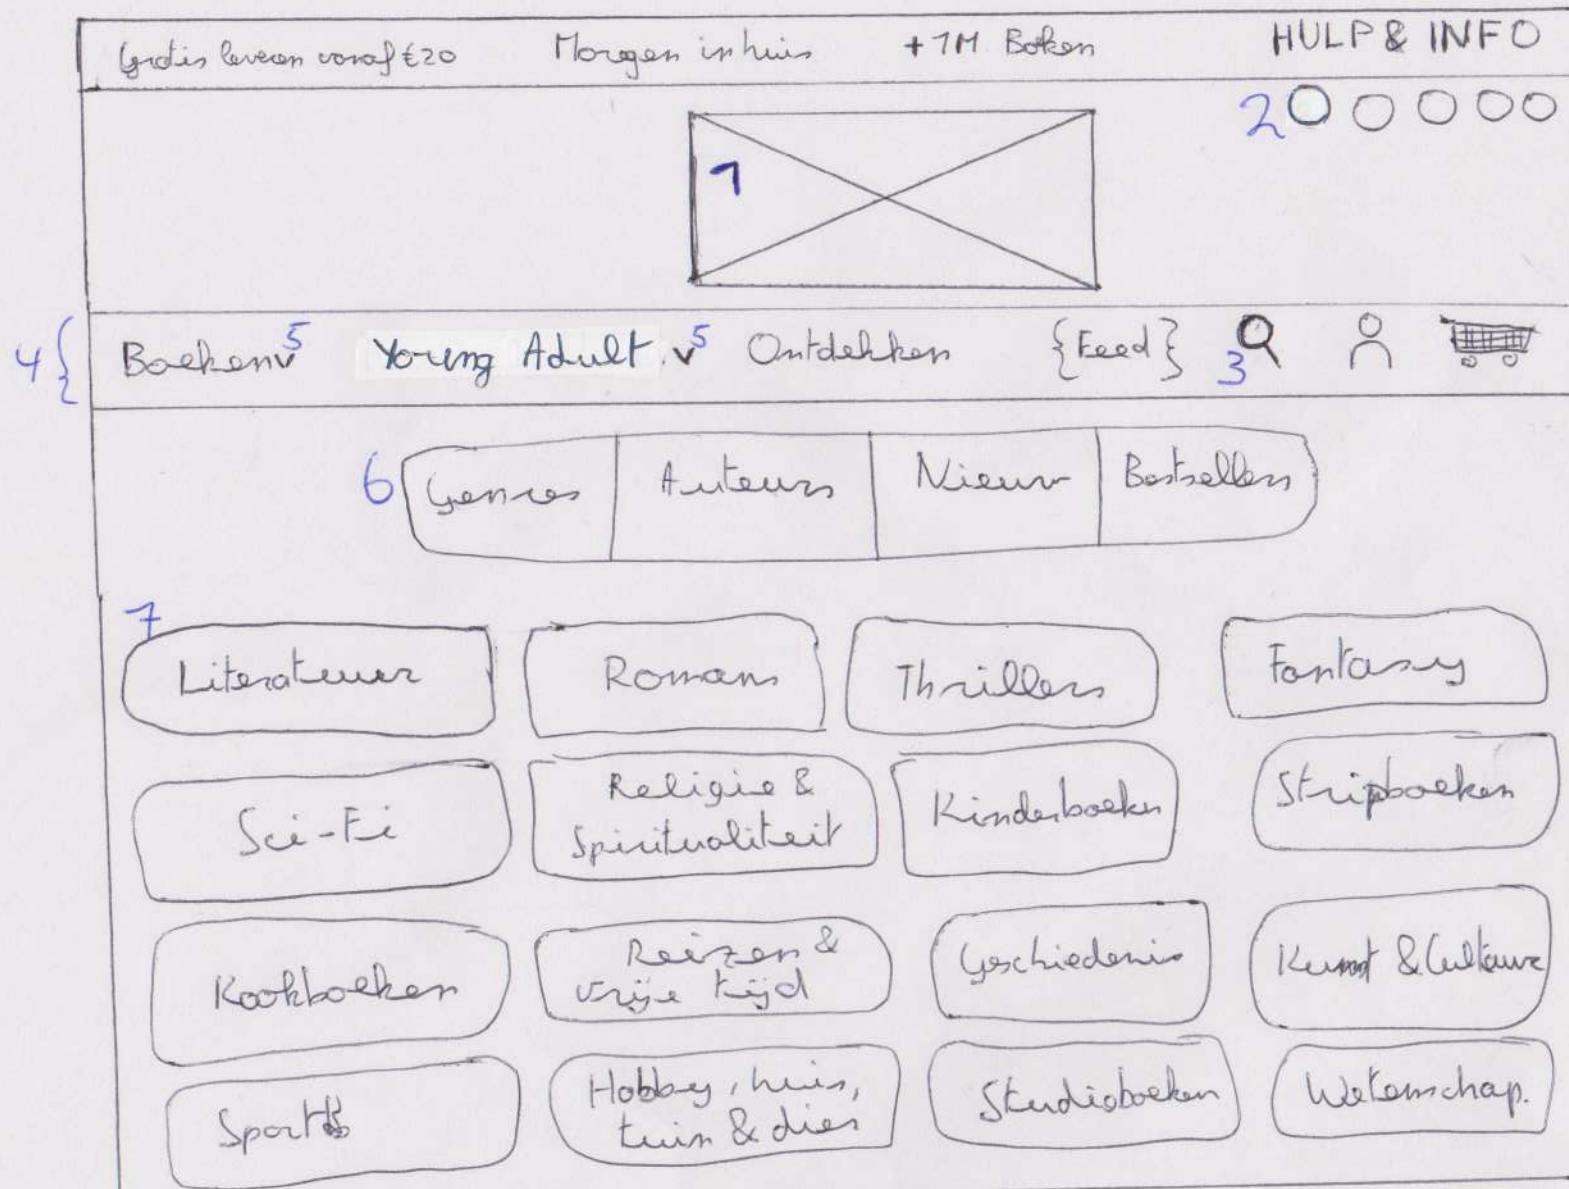 Gratis leveren vanaf €20 Morgen in huis +1M Boken HULP & INFO
2
1
4 { Boeken v 5 Young Adult v 5 Ontdekken {Feed} 3
6 Genres Auteurs Nieuw Bestsellers
7
Literatuur Romans Thrillers Fantasy
Sci-Fi Religie & Spiritualiteit Kinderboeken Stripboeken
Kookboeken Reizen & vrije tijd Geschiedenis Kunst & Cultuur
Sport Hobby, huis, tuin & dier Studieboeken Wetenschap.